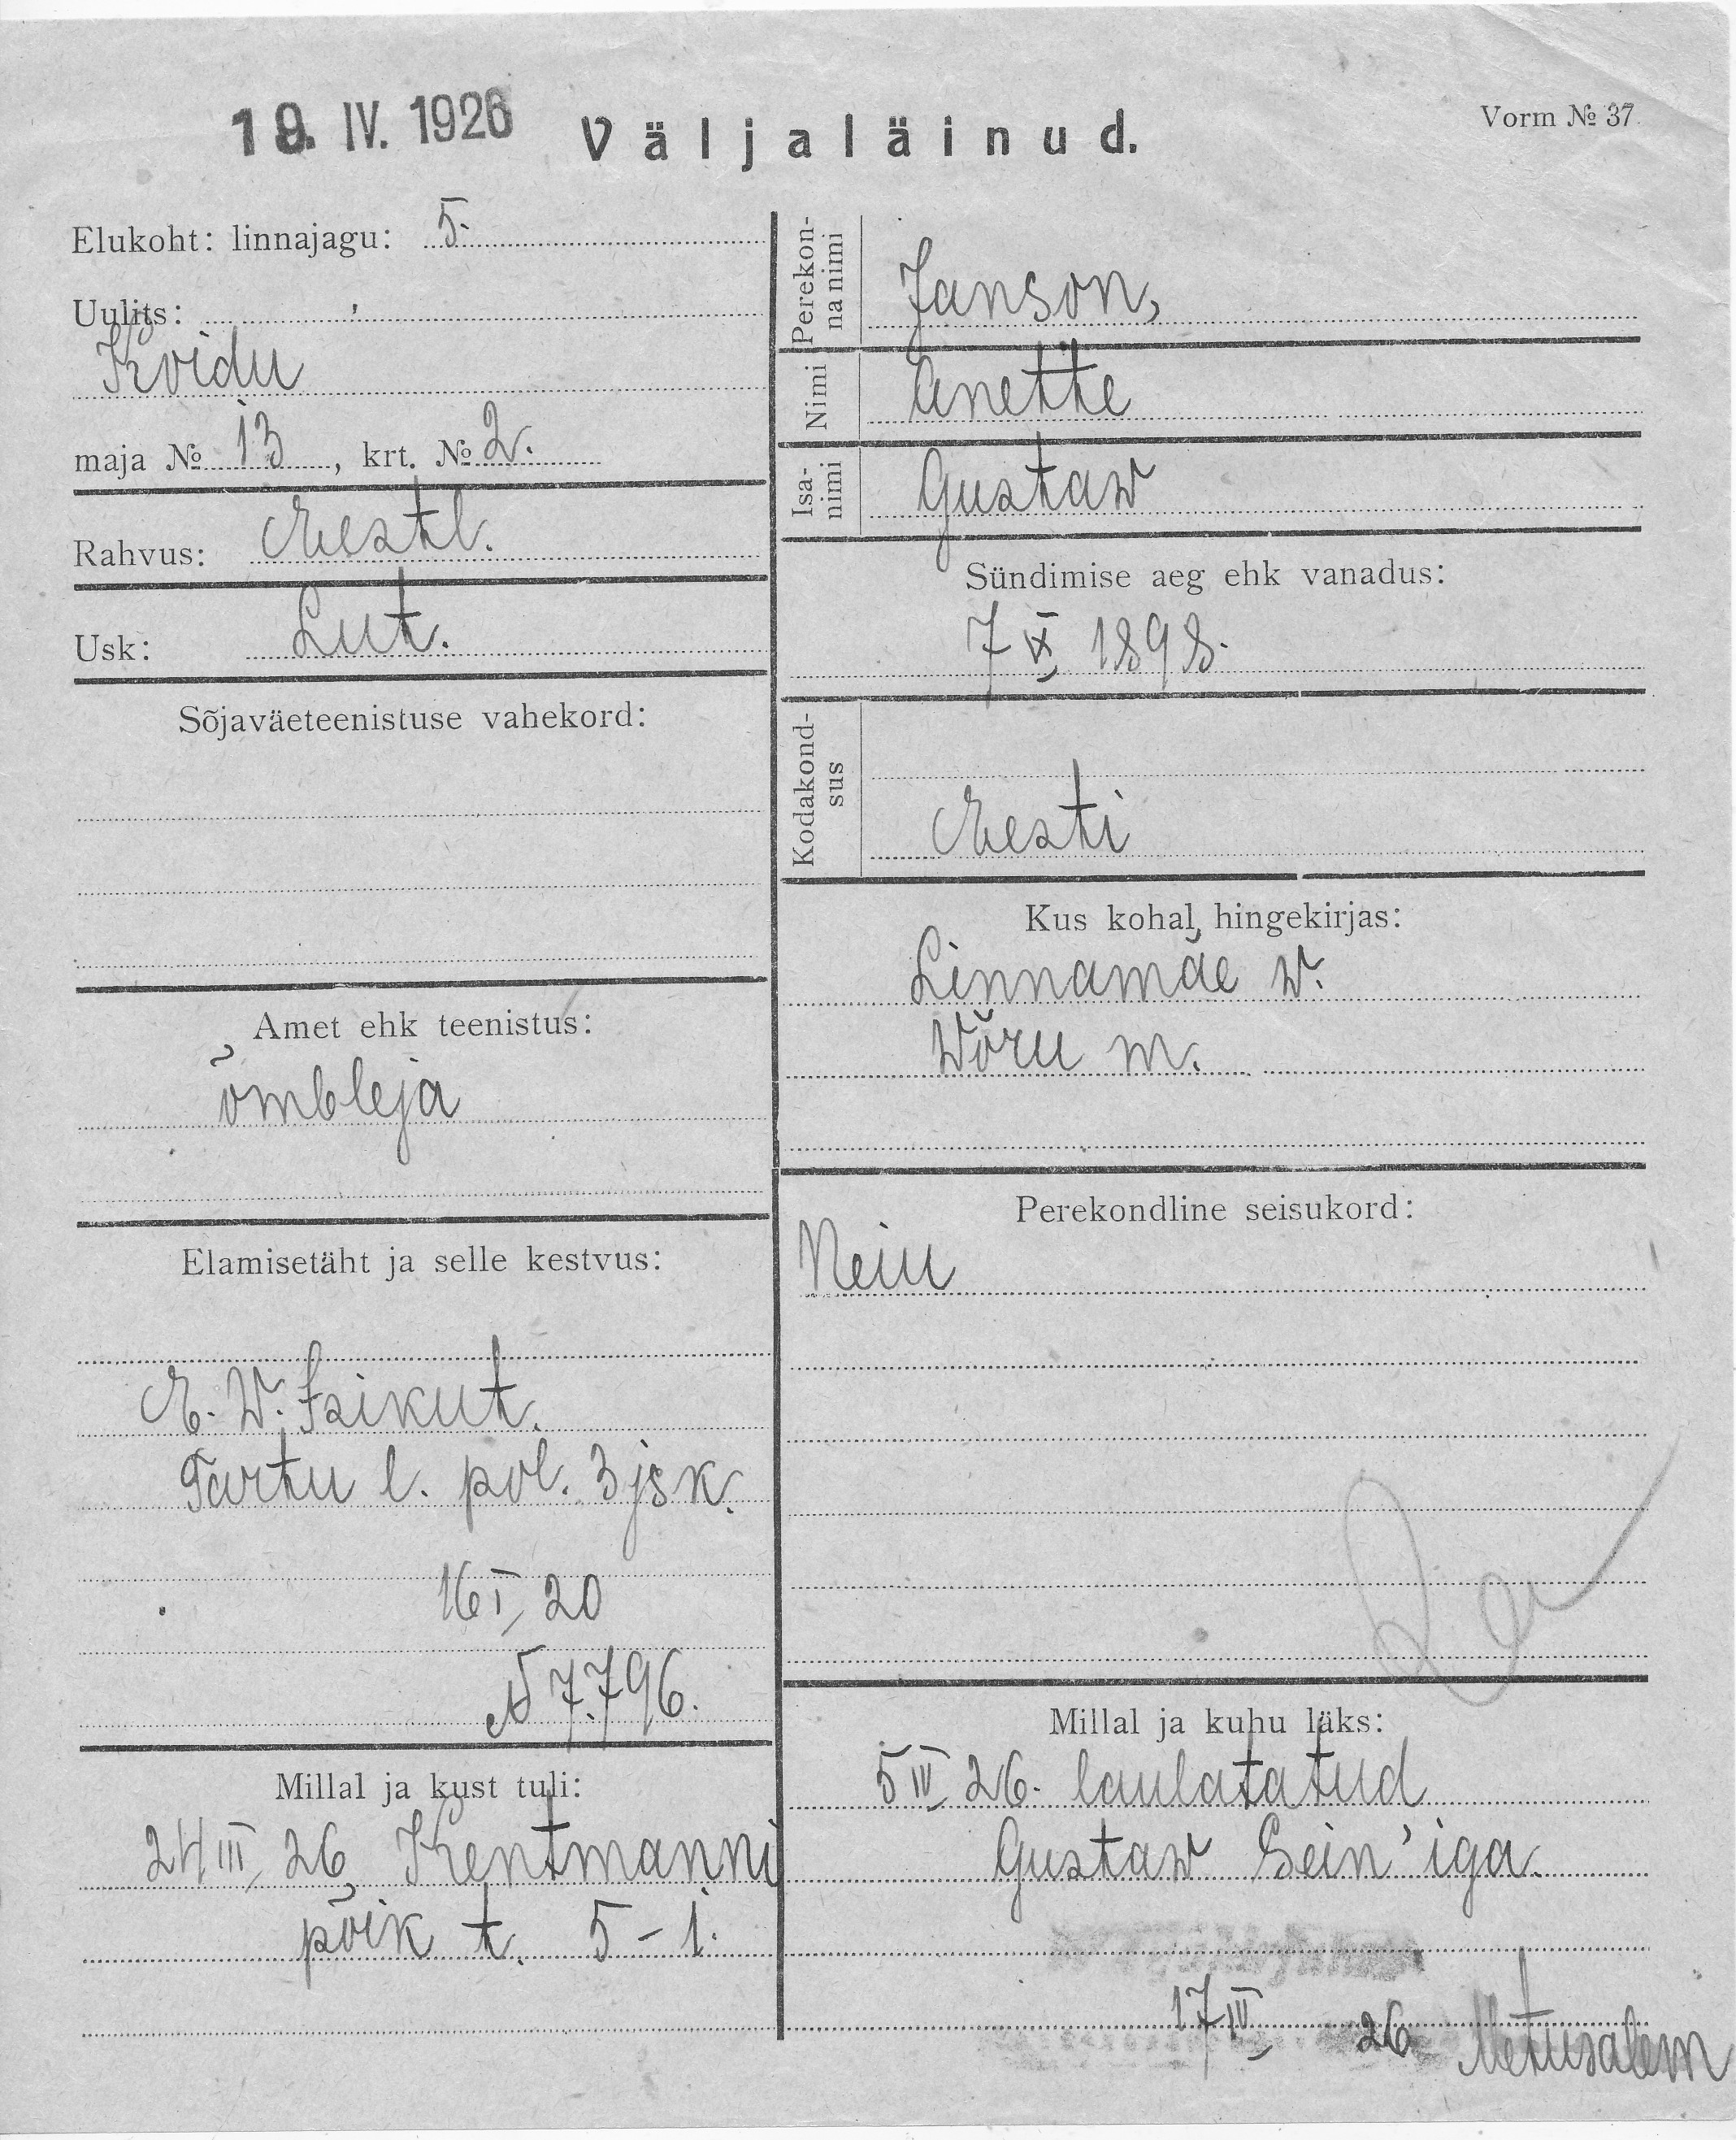 19. IV. 1926
Väljaläinud.
Vorm № 37
Elukoht: linnajagu: 5.
Uulits:
Koidu
maja № 13, krt. № 2.
Rahvus: Eestl.
Usk: Lut.
Sõjaväeteenistuse vahekord:
Amet ehk teenistus:
õmbleja
Elamisetäht ja selle kestvus:
E. W. Isikut.
Tartu l. pol. 3 jsk.
16 I 20
N 7.796.
Millal ja kust tuli:
24 III 26, Kentmanni
põik t. 5-1.
Perekonna nimi
Janson,
Nimi
Anette
Isanimi
Gustaw
Sündimise aeg ehk vanadus:
7 IX 1898.
Kodakondsus
Eesti
Kus kohal hingekirjas:
Linnamäe w.
Wõru m.
Perekondline seisukord:
Neiu
Millal ja kuhu läks:
5 IV 26. laulatatud
Gustaw Sein'iga.
17 IV 26 Metusalem